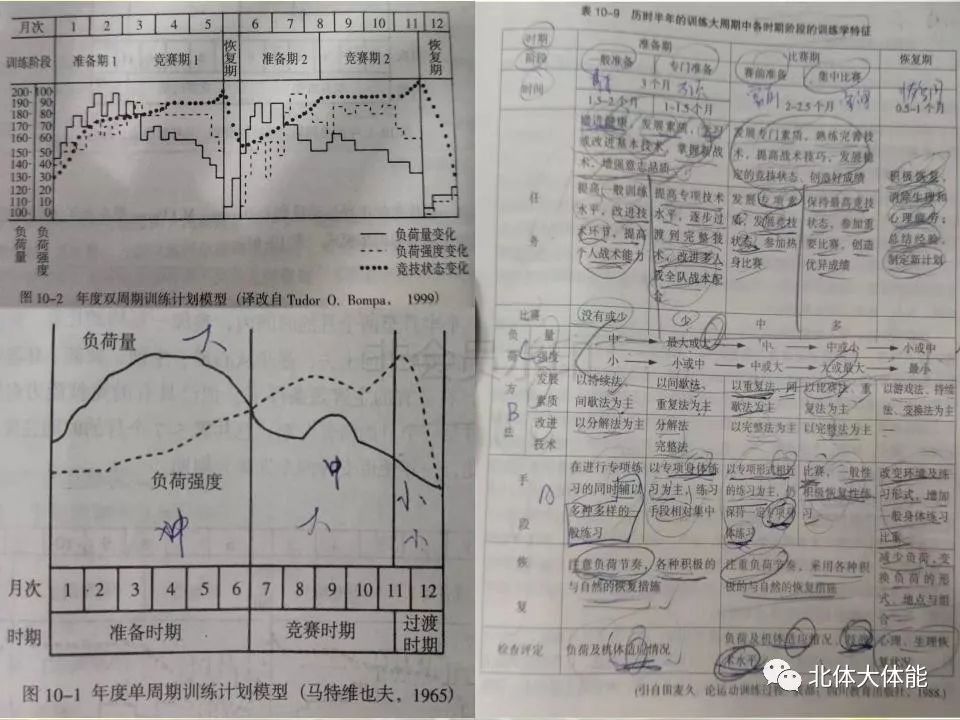 月次 1 2 3 4 5 6 7 8 9 10 11 12
训练阶段 准备期1 竞赛期1 恢复期 准备期2 竞赛期2 恢复期
200 100
190 90
180 80
170 70
160 60
150 50
140 40
130 30
120 20
110 10
100 0
负荷量 负荷强度
负荷量变化
负荷强度变化
竞技状态变化
图 10-2 年度双周期训练计划模型(译改自 Tudor O. Bompa, 1999)
负荷量 大
负荷强度
中
中 大 小
小
月次 1 2 3 4 5 6 7 8 9 10 11 12
时期 准备时期 竞赛时期 过渡时期
图 10-1 年度单周期训练计划模型(马特维也夫,1965)
表 10-9 历时半年的训练大周期中各时期阶段的训练学特征
时期 准备期 比赛期 恢复期
阶段 一般准备 专门准备 赛前准备 集中比赛
时间 3个月 2-2.5个月 0.5-1个月
1.5-2个月 1-1.5个月
任务
增进健康,发展素质,学习
或改进基本技术,掌握新战
术,增强意志品质
发展专门素质,熟练完善技
术,提高战术技巧,发展稳
定的竞技状态、创造好成绩
积极恢复,
消除生理和
心理疲劳;
总结经验,
制定新计划
提高一般训练
水平,改进技
术环节,提高
个人战术能力
提高专项技术
水平,逐步过
渡到完整技
术,改进多人
或全队战术配
合
发展专项素
质,发展竞技
状态,参加热
身比赛
保持最高竞技
状态,参加重
要比赛,创造
优异成绩
比赛 没有或少 少 中 多
负荷 量 中 最大或大 中 中或小 小或中
强度 小 小或中 中或大 大或最大 最小
方法 B
发展素质
以持续法、
间歇法为主
以间歇法、
重复法为主
以重复法、间
歇法为主
以比赛法、重
复法为主
以游戏法、持续
法、变换法为主
改进技术
以分解法为主
分解法
完整法
以完整法为主
以完整法为主
—
手段
在进行专项练
习的同时辅以
多种多样的一
般练习
以专项身体练
习为主,练习
手段相对集中
以专项形式相近
的练习为主,仍
保持一定专项身
体练习
比赛,一般性
积极恢复性练
习
改变环境及练
习形式,增加
一般身体练习
比重
恢复
注意负荷节奏,各种积极的
与自然的恢复措施
注重负荷节奏,采用各种积
极的与自然的恢复措施
减少负荷,变
换负荷的形
式、地点与组
合
检查评定 负荷及机体适应情况
负荷及机体适应情况,
术水平
心理、生理恢
复状况
北体大体能